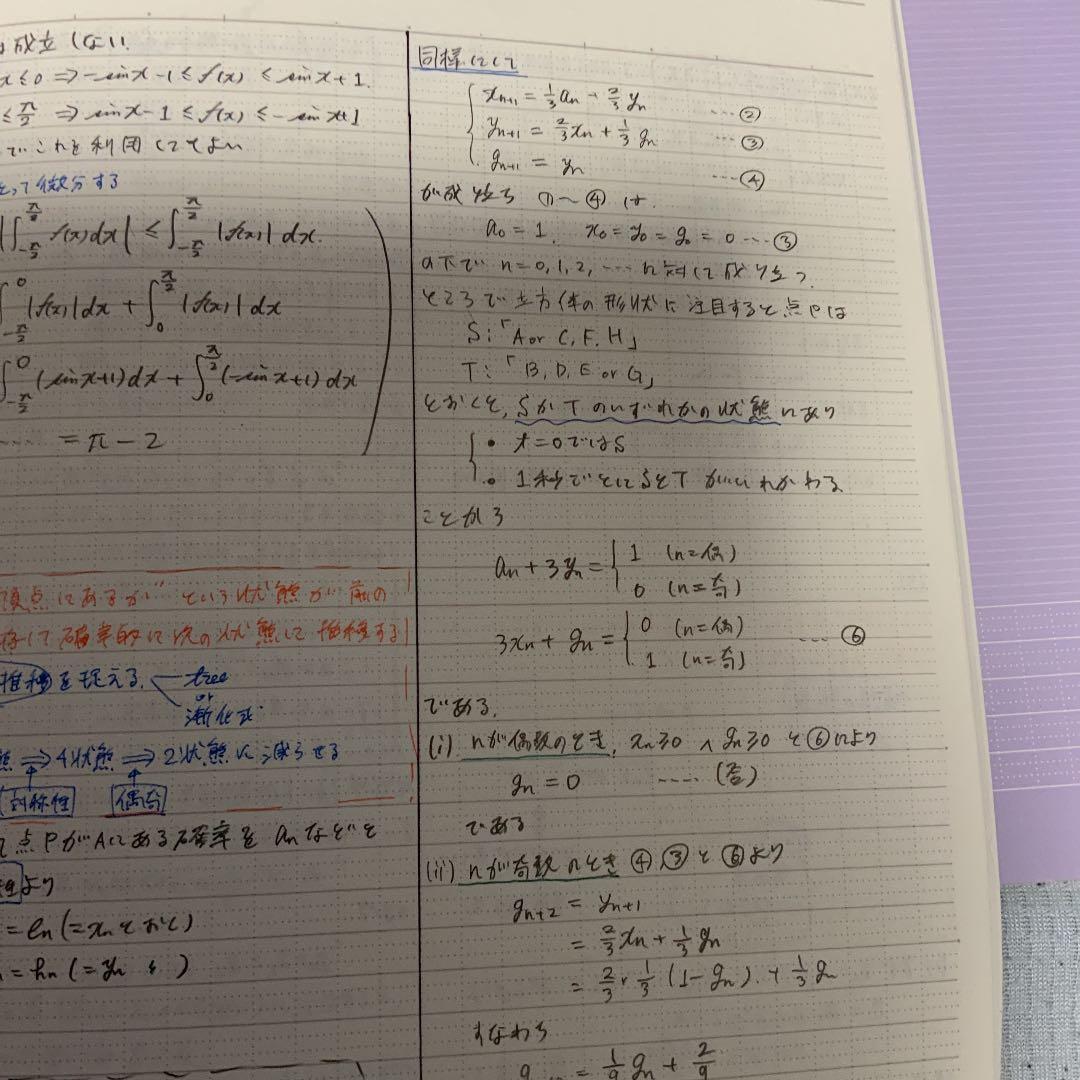 成立しない
x≤0 ⇒ -sinx-1 ≤ f(x) ≤ sinx+1.
≤π/2 ⇒ sinx-1 ≤ f(x) ≤ -sinx+1
でこれを利用してよい
とって微分する
|∫_{-π/2}^{π/2} f(x)dx| ≤ ∫_{-π/2}^{π/2} |f(x)| dx.
∫_{-π/2}^{0} |f(x)|dx + ∫_{0}^{π/2} |f(x)| dx
∫_{-π/2}^{0} (sinx+1)dx + ∫_{0}^{π/2} (-sinx+1)dx
..... = π-2
頂点にあるか" という状態が 前の
存して確率的に次の状態に推移する
推移を捉える. tree
or
漸化式
態 ⇒ 4状態 ⇒ 2状態に減らせる
対称性 偶奇
て点PがAにある確率を an などと
性より
= en (= xn とおく)
= hn (= yn 〃 )
同様にして
xn+1 = 1/3 an + 2/3 yn ....②
yn+1 = 2/3 xn + 1/3 gn ....③
gn+1 = yn ....④
が成り立ち ①〜④ は.
a0 = 1, x0 = y0 = g0 = 0 ....③
の下で n=0,1,2,....に対して成り立つ.
ところで立方体の形状に注目すると点Pは
S:「A or C, F, H」
T:「B, D, E or G」
とおくと, SかTのいずれかの状態にあり
• t=0ではS
• 1秒ごとにSとTがいれかわる
ことから
an + 3yn = { 1 (n=偶)
0 (n=奇)
3xn + gn = { 0 (n=偶) .... ⑥
1 (n=奇)
である.
(i) nが偶数のとき, xn≥0 ∧ gn≥0 と⑥により
gn = 0 ..... (答)
である
(ii) nが奇数のとき ④,③と⑥より
gn+2 = yn+1
= 2/3 xn + 1/3 gn
= 2/3・1/3 (1-gn) + 1/3 gn
すなわち
= 1/9 gn + 2/9